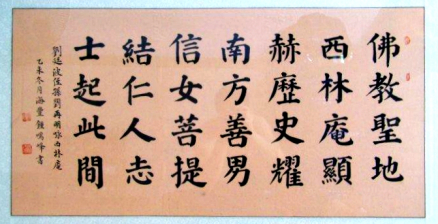 佛教聖地
西林庵顯
赫歷史耀
南方善男
信女菩提
結仁人志
士起此間
劉延波侄孫劉再明詠西林庵
乙未冬月海豐鍾鳴峰書